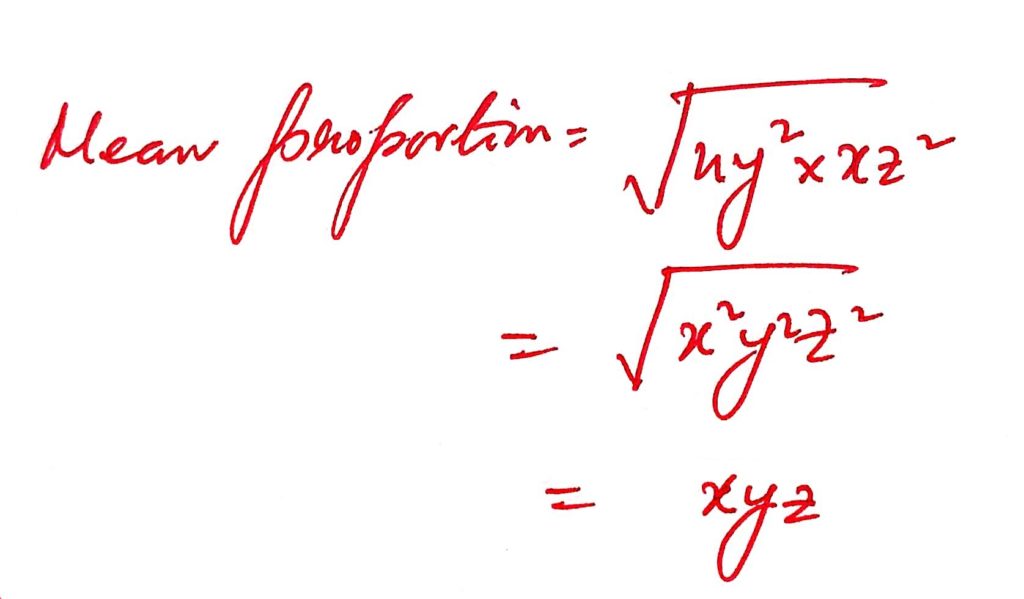 Mean proportion = √(xy² × xz²)
= √(x²y²z²)
= xyz